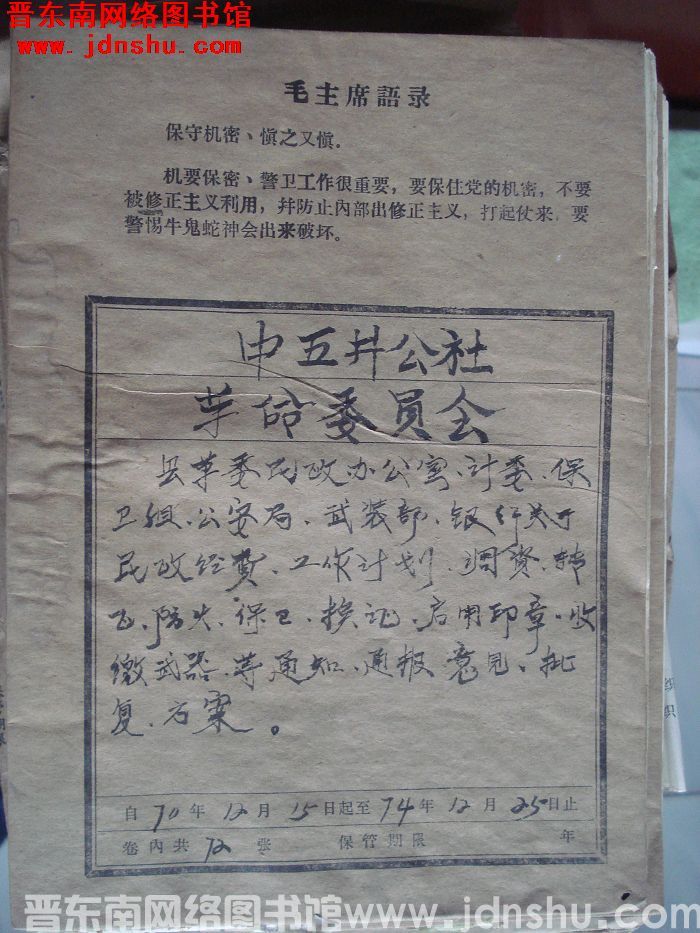 晋东南网络图书馆
www.jdnshu.com
毛主席語录
保守机密、慎之又慎。
机要保密、警卫工作很重要，要保住党的机密，不要
被修正主义利用，幷防止內部出修正主义，打起仗来，要
警惕牛鬼蛇神会出来破坏。
中五井公社
革命委员会
县革委民政办公室、计委、保
卫组、公安局、武装部、银行关于
民政经费、工作计划、调资、转
飞、防火、保卫、换证、启用印章、收
缴武器、等通知、通报意见、批
复、方案。
自70年12月15日起至74年12月25日止
卷內共72张 保管期限 年
晋东南网络图书馆 www.jdnshu.com